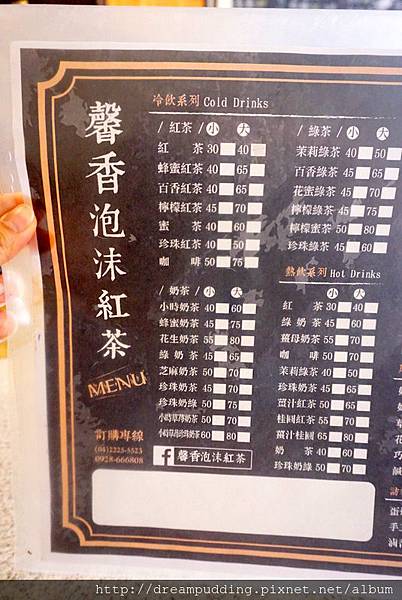 馨香泡沫紅茶
MENU
訂購專線
(04)2225-5523
0928-666808
冷飲系列 Cold Drinks
/ 紅茶 / 小 大
紅 茶 30 40
蜂蜜紅茶 40 65
百香紅茶 40 65
檸檬紅茶 45 70
蜜 茶 40 60
珍珠紅茶 40 50
咖 啡 50
/ 奶茶 / 小 大
小時奶茶 40 60
蜂蜜奶茶 45 75
花生奶茶 55 80
綠 奶 茶 45 60
芝麻奶茶 50 70
珍珠奶茶 45 70
珍珠奶綠 50 75
50 70
60 80
f 馨香泡沫紅茶
/ 綠茶 / 小 大
茉莉綠茶 40 50
百香綠茶 45 65
花蜜綠茶 45 70
檸檬綠茶 45 75
檸檬蜜茶 50 80
珍珠綠茶 45 60
熱飲系列 Hot Drinks
小 大
紅 茶 30 40
綠 奶 茶 45 60
薑母奶茶 55 70
咖 啡 50 70
茉莉綠茶 40 50
珍珠奶茶 45 65
薑汁紅茶 50 65
桂圓紅茶 55 70
薑汁桂圓 65 80
奶 茶 40 60
珍珠奶綠 50 70
http://dreampudding.pixnet.net/album